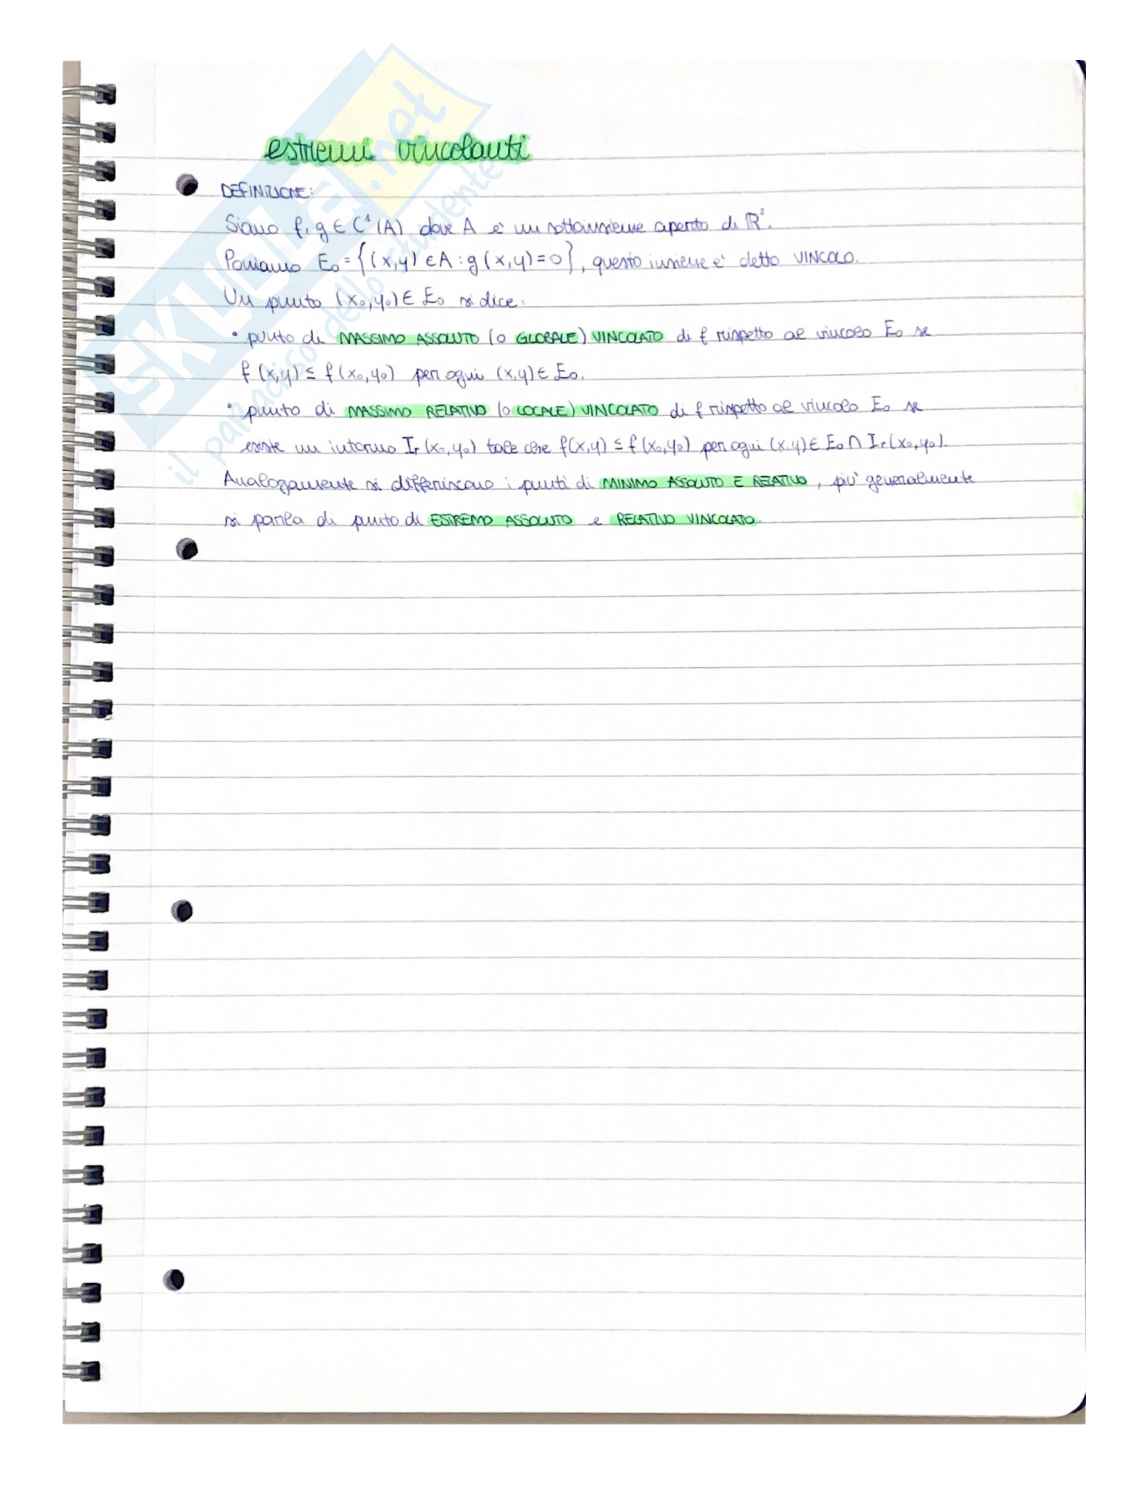 estremi vincolanti
DEFINIZIONE:
Siano f, g ∈ C¹(A) dove A è un sottoinsieme aperto di ℝ².
Poniamo E₀ = {(x,y) ∈ A : g(x,y) = 0}, questo insieme è detto VINCOLO.
Un punto (x₀,y₀) ∈ E₀ si dice:
• punto di MASSIMO ASSOLUTO (o GLOBALE) VINCOLATO di f rispetto al vincolo E₀ se
f(x,y) ≤ f(x₀,y₀) per ogni (x,y) ∈ E₀.
• punto di MASSIMO RELATIVO (o LOCALE) VINCOLATO di f rispetto al vincolo E₀ se
esiste un intorno Iᵣ(x₀,y₀) tale che f(x,y) ≤ f(x₀,y₀) per ogni (x,y) ∈ E₀ ∩ Iᵣ(x₀,y₀).
Analogamente si differiscono i punti di MINIMO ASSOLUTO E RELATIVO, piu' generalmente
si parla di punto di ESTREMO ASSOLUTO e RELATIVO VINCOLATO.
SKUOLA.net
il paradiso dello studente